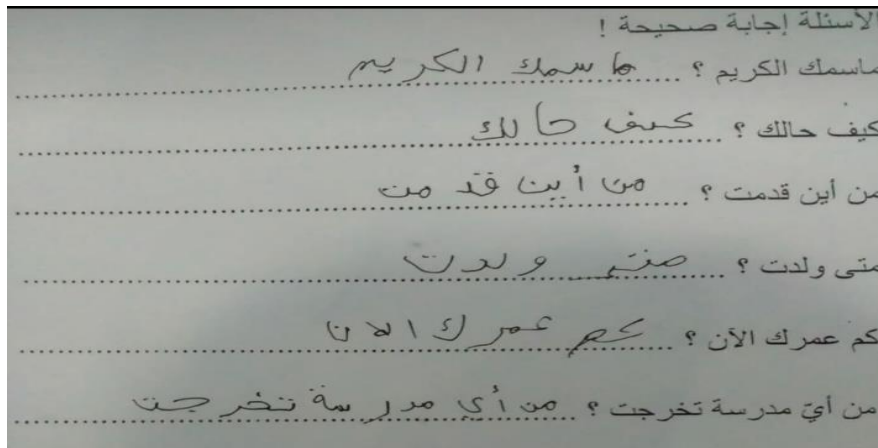 الأسئلة إجابة صحيحة !
ماسمك الكريم ؟ ما سمك الكريم
كيف حالك ؟ كيف حالك
من أين قدمت ؟ من أين قد مت
متى ولدت ؟ متى ولدت
كم عمرك الآن ؟ كم عمرك الان
من أيّ مدرسة تخرجت ؟ من أي مدرسة تخرجت